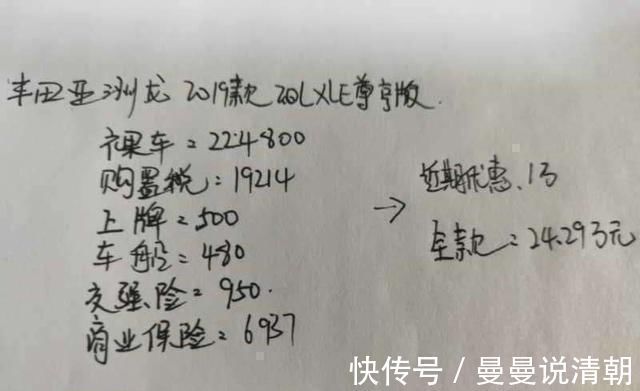 丰田亚洲龙 2019款 2.0L XLE尊享版
裸车：224800
购置税：19214
上牌：500
车船：480
交强险：950.
商业保险：6937
→
近期优惠、1万
全款：24.29万元
快传号 / 曼曼说清朝